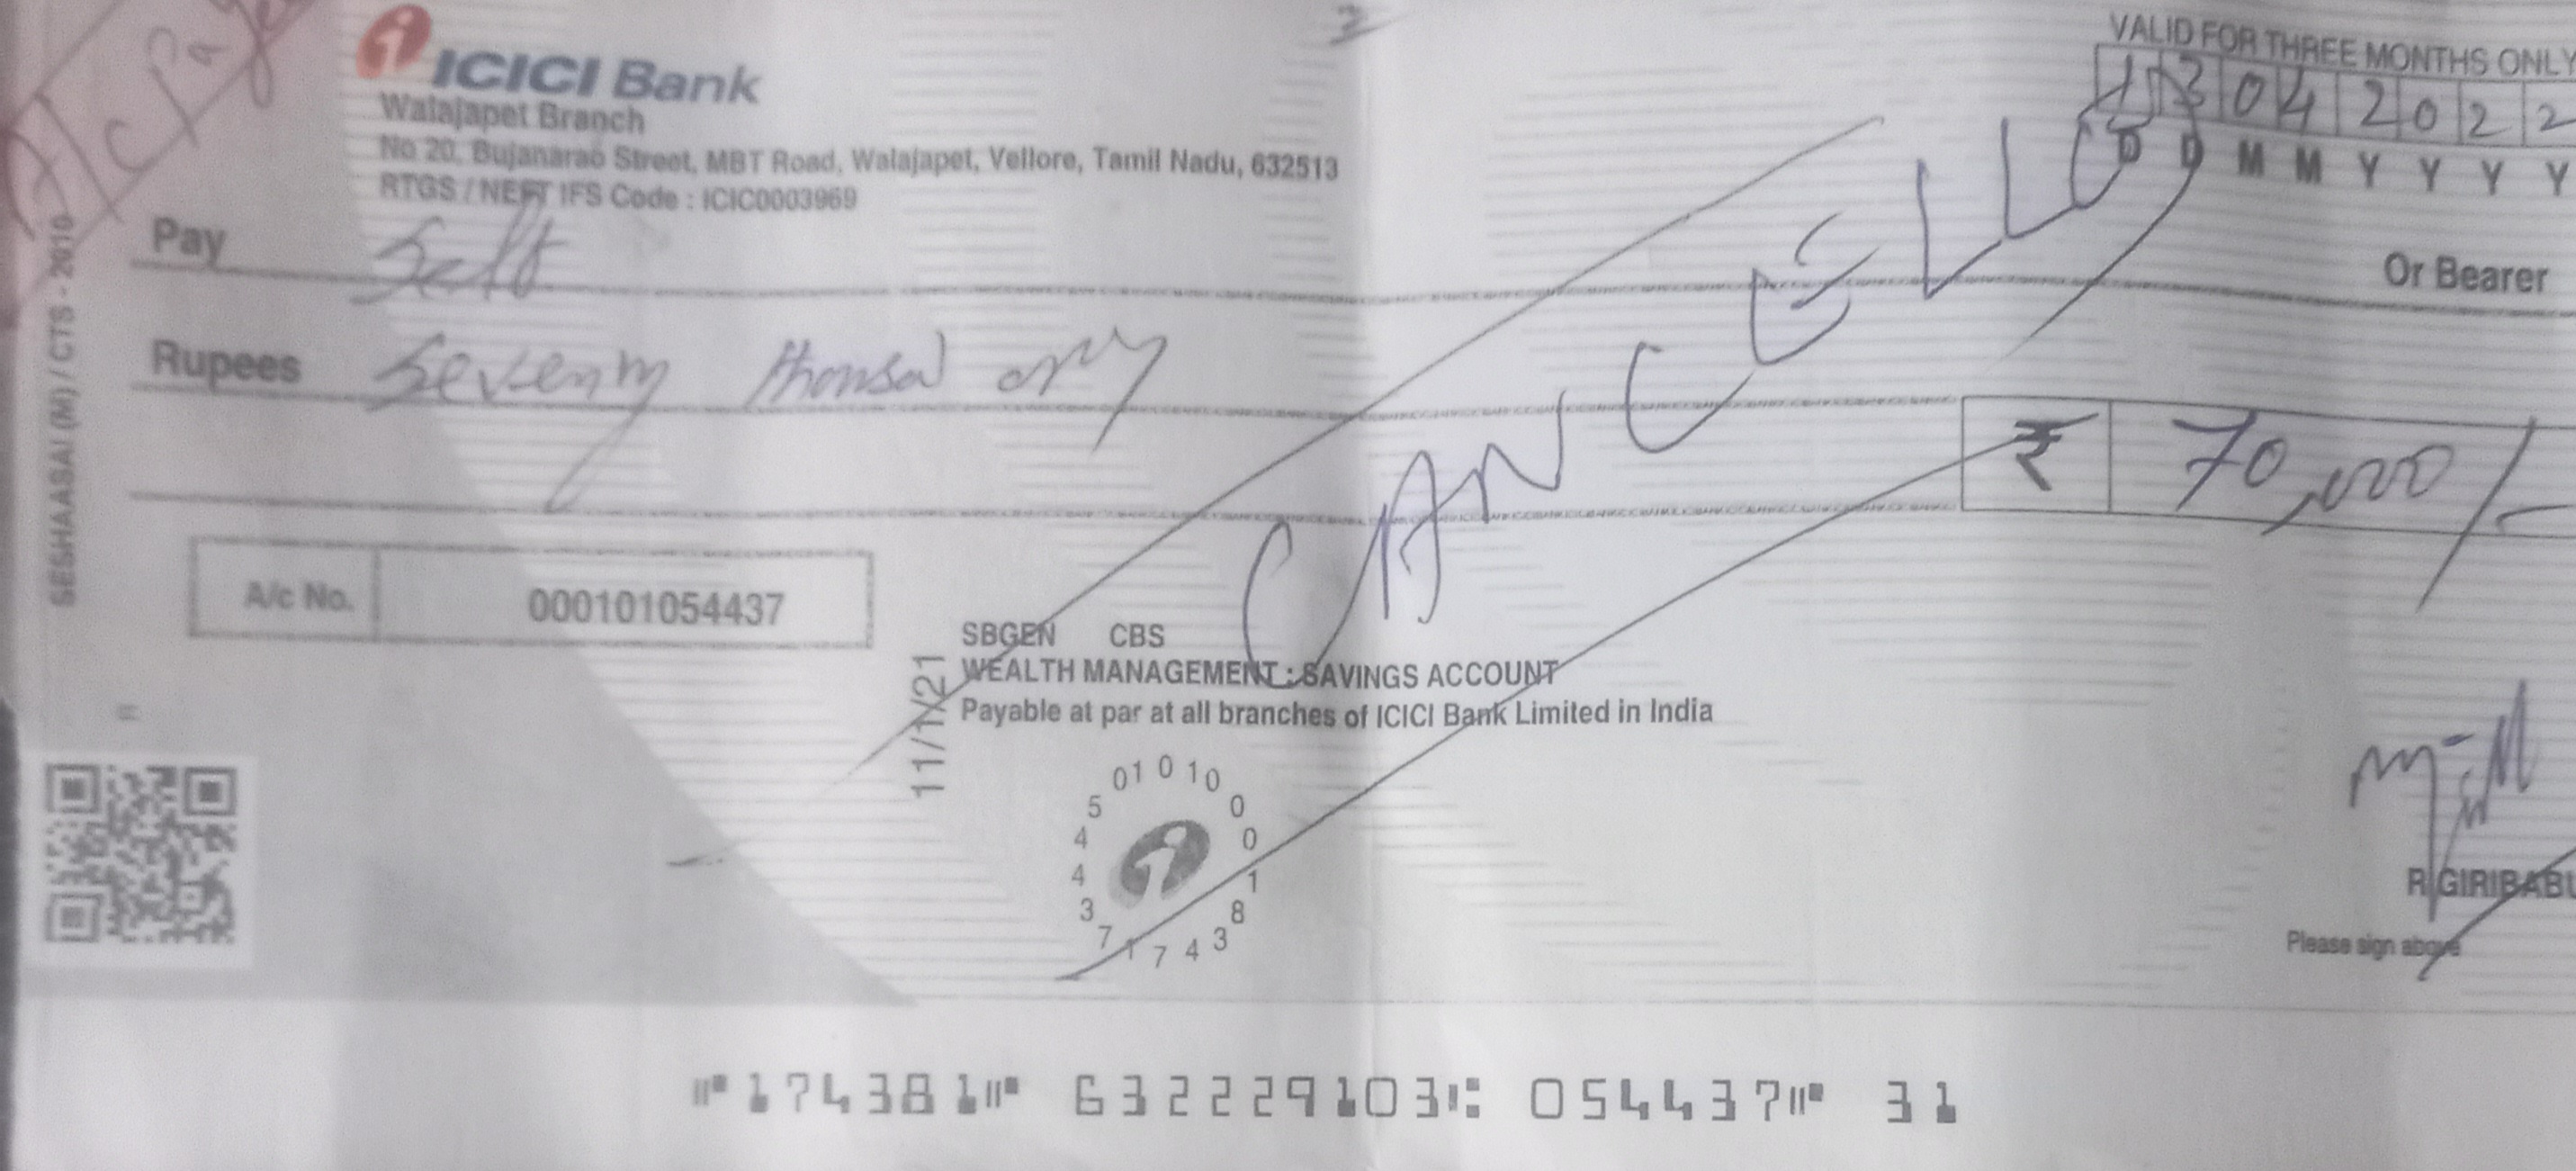 A/c Paye
ICICI Bank
Walajapet Branch
No 20, Bujanarao Street, MBT Road, Walajapet, Vellore, Tamil Nadu, 632513
RTGS / NEFT IFS Code : ICIC0003969
VALID FOR THREE MONTHS ONLY
13042022
D D M M Y Y Y Y
Pay Self
Or Bearer
Rupees Seventy thousad only
CANCELLED
₹ 70,000/-
A/c No. 000101054437
SESHAASAI (M) / CTS - 2010
11/1/21
SBGEN CBS
WEALTH MANAGEMENT : SAVINGS ACCOUNT
Payable at par at all branches of ICICI Bank Limited in India
000101054437174381
R GIRIBABU
Please sign above
⑈174381⑈ 632229103⑆ 054437⑈ 31